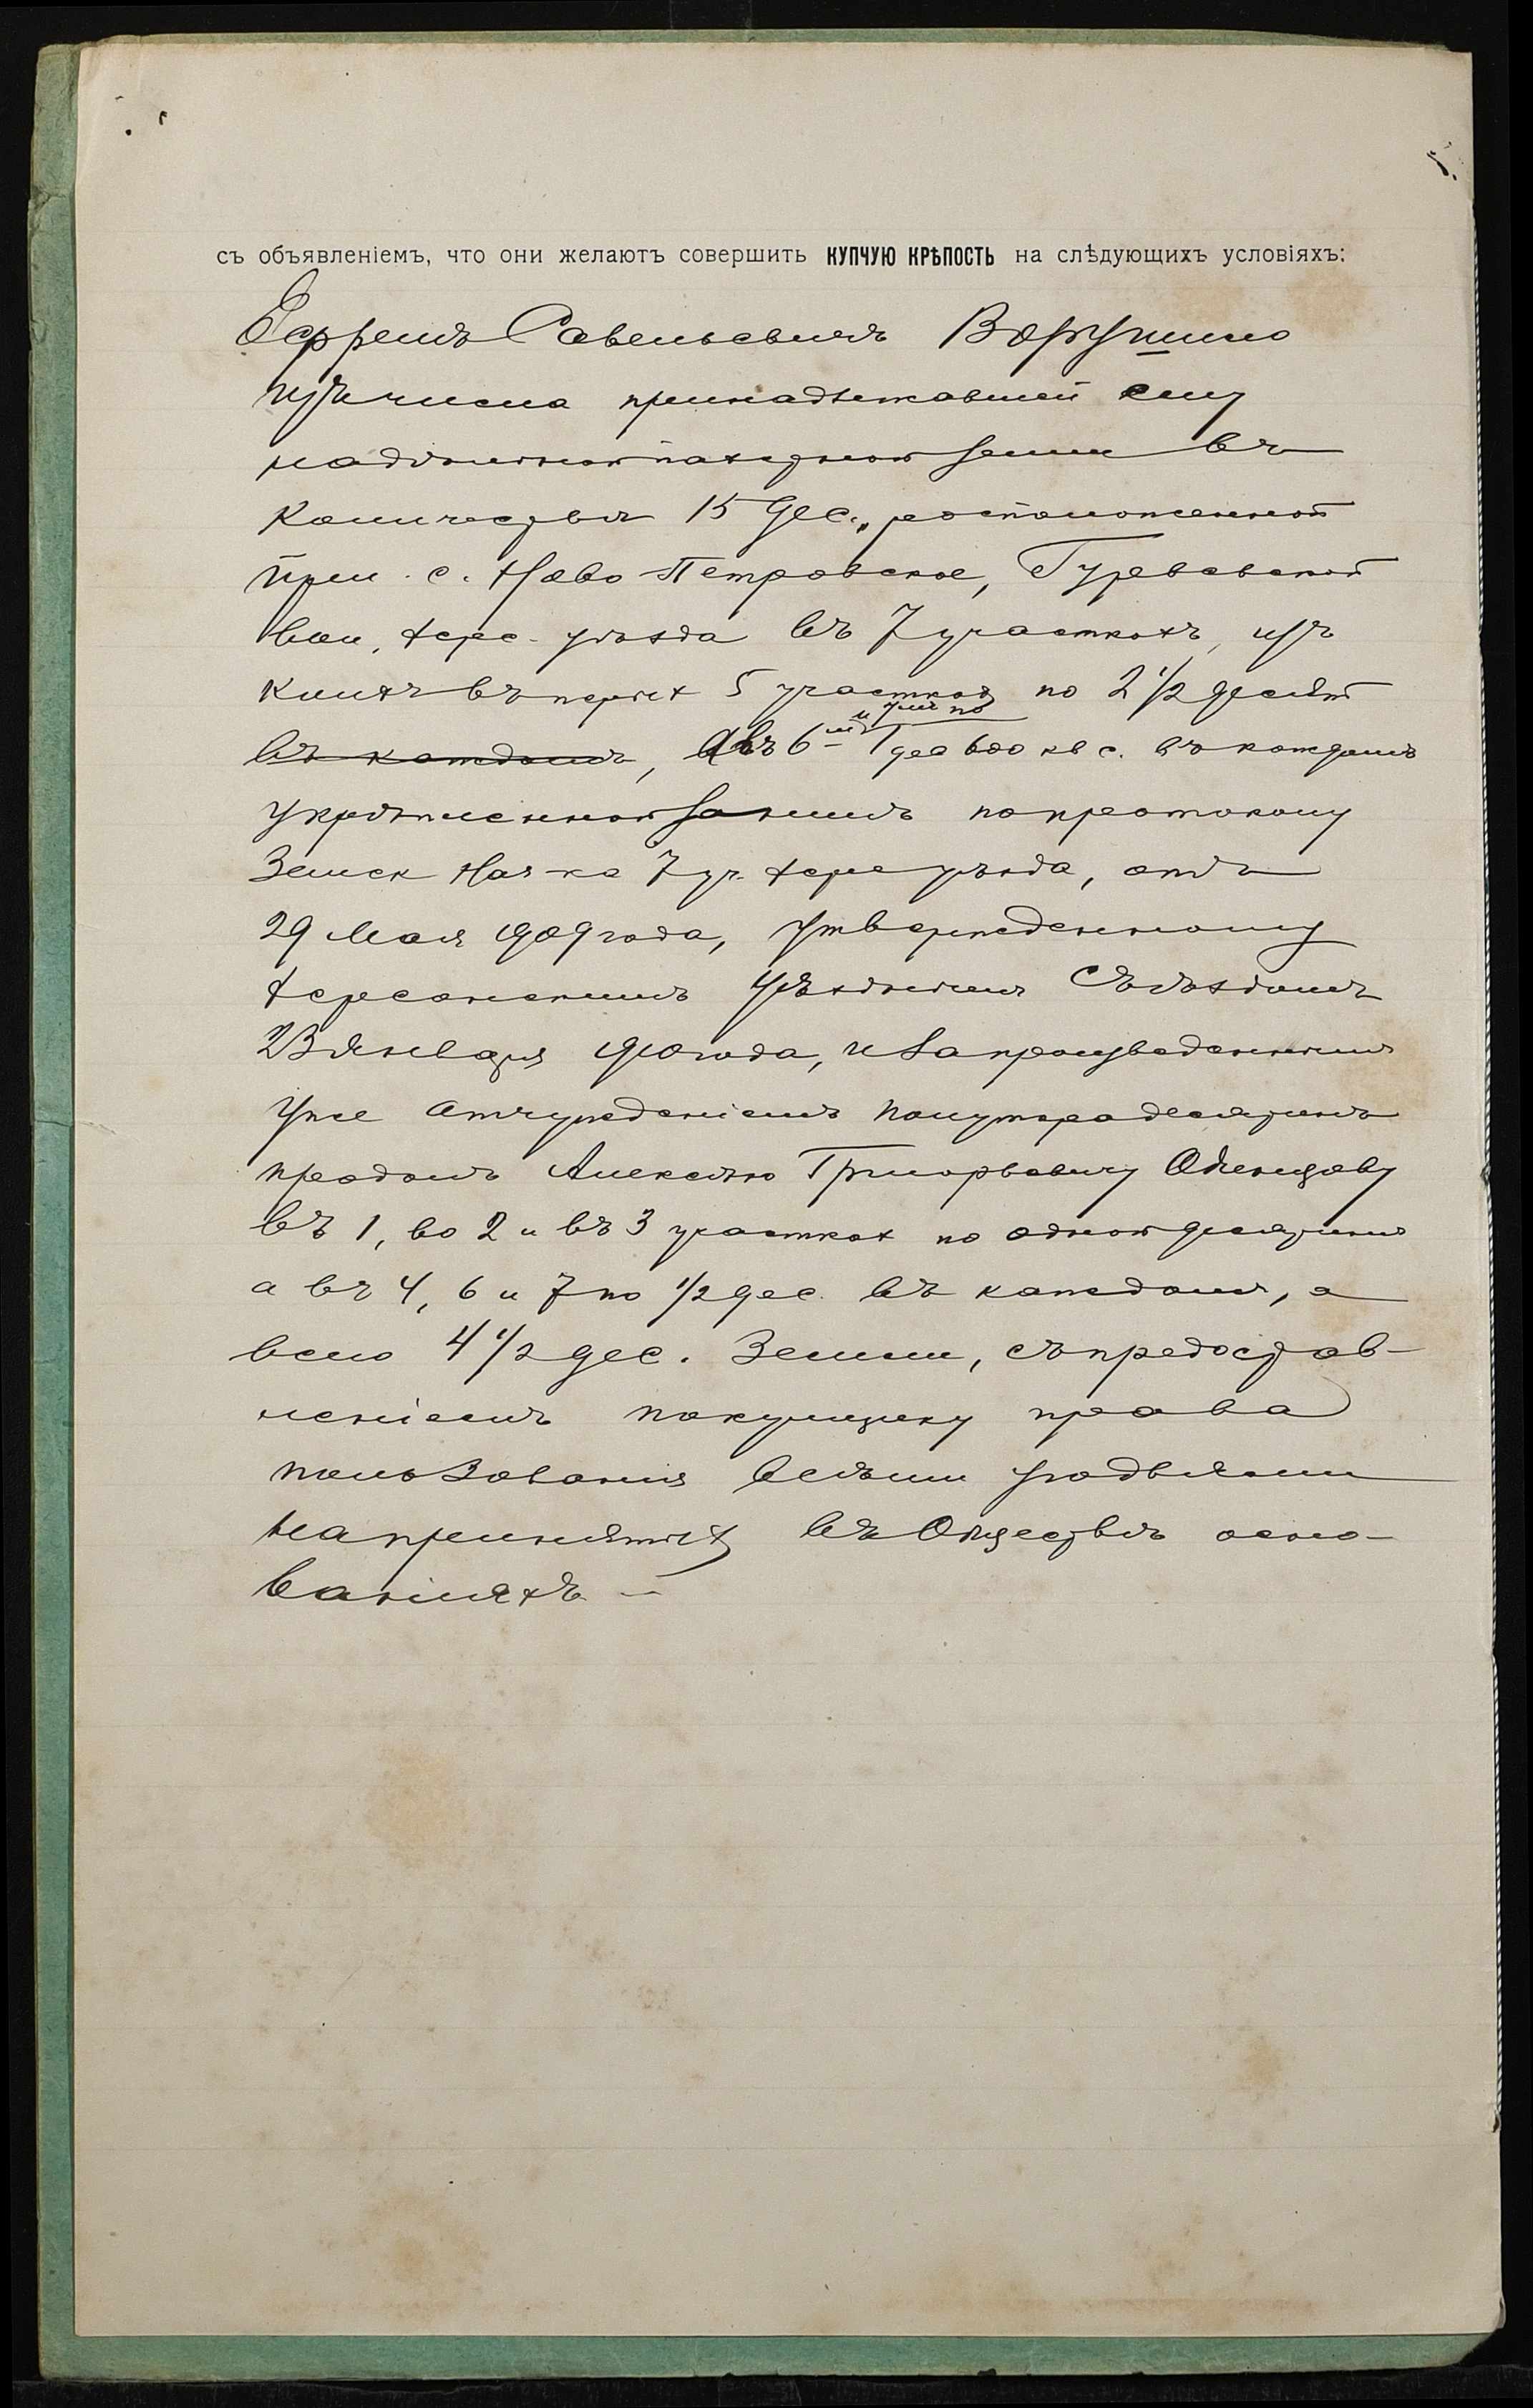 съ объявленіемъ, что они желаютъ совершить КУПЧУЮ КРѢПОСТЬ на слѣдующихъ условіяхъ:
Ефремъ Савельевичъ
изъ числа принадлежавшей ему
надѣльной пахатной земли въ
количествѣ 15 дес., расположенной
при с. Ново-Петровское, Гурьевской
вол., Херс. уѣзда въ 7 участкахъ, изъ
коихъ въ первых 5 участках по 2 1/2 десят
въ каждомъ, а въ 6-мъ и 7мъ по 1 дес 600 кв с. въ каждомъ
укрѣпленной за нимъ по протоколу
Земск Нач-ка 7 уч. Херс уѣзда, отъ
29 Мая 1909 года, утвержденному
Херсонскимъ Уѣзднымъ Съѣздомъ
23 Января 1910 года, и за произведеннымъ
уже отчужденіемъ полутора десятинъ
продалъ Алексѣю Григорьевичу
въ 1, во 2 и въ 3 участках по одной десятинѣ
а въ 4, 6 и 7 по 1/2 дес. въ каждомъ, а
всего 4 1/2 дес. земли, съ предостав-
леніемъ покупщику права
пользованія всѣми угодьями
на принятых въ Обществѣ осно-
ваніяхъ —